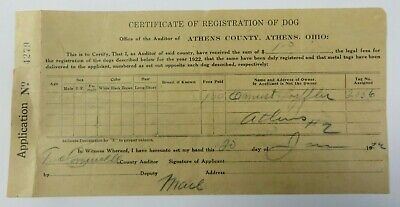 CERTIFICATE OF REGISTRATION OF DOG
Office of the Auditor of ATHENS COUNTY, ATHENS, OHIO:
This is to Certify, That I, as Auditor of said county, have received the sum of $ 1.00, the legal fees for
the registration of the dogs described below for the year 1922, that the same have been duly registered and that metal tags have been
delivered to the applicant, numbered as set out opposite each dog described, respectively:
Application No 4279
Age
Sex
Color
Hair
Breed if Known
Fees Paid
Name and Address of Owner.
If Applicant is Not the Owner
Tag No.
Assigned
Yrs. Mos. M. F. White Black Brown Long Short
1.00
Athens
#2
Indicate Description by "X" in proper column.
In Witness Whereof, I have hereunto set my hand this
day of
19
County Auditor Signature of Applicant
by Deputy Address
Mail